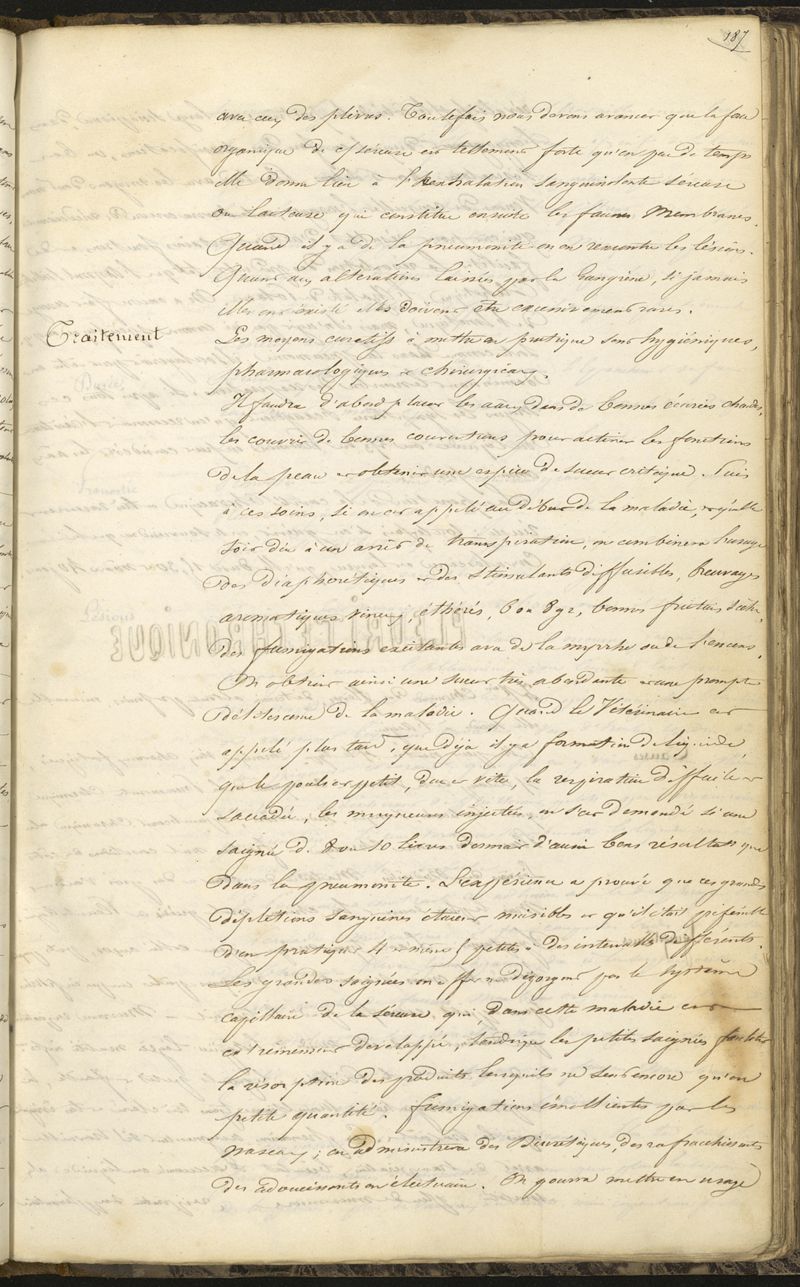 187
avec ceux des plèvres. Toutefois nous devons avancer que la force
organique de c/ séreuse est tellement forte qu'en peu de temps
elle donne lieu à l'exhalation sanguinolente séreuse
ou laiteuse qui constitue ensuite les fausses Membranes.
Quand il y a de la pneumonite on en rencontre les lésions.
Quant aux altérations laissées par la Gangrène, si jamais
elles ont existé elles doivent être excessivement rares.
Traitement
Les moyens curatifs à mettre en pratique sont hygiéniques,
pharmacologiques et chirurgicaux.
Il faudra d'abord placer les aaux dans de bonnes écuries chaudes,
les couvrir de bonnes couvertures pour activer les fonctions
de la peau et obtenir une espèce de sueur critique. Suis
à ces soins, si on est appelé au début de la maladie, et qu'elle
soit due à un arrêt de transpiration, on combinera l'usage
des diaphorétiques et des stimulants diffusibles, breuvages
aromatiques vineux, éthérés, 6 ou 8 gr, bonnes frictions sèches,
des fumigations excitantes avec de la myrrhe ou de l'encens.
On obtient ainsi une sueur très abondante et une prompte
délitescence de la maladie. Quand le Vétérinaire est
appelé plus tard, que déjà il y a formation de liquide
que le pouls est petit, dur et vite, la respiration difficile et
saccadée, les muqueuses injectées, on s'est demandé si une
saignée de 8 ou 10 livres donnait d'aussi bons résultats que
dans la pneumonite. L'expérience a prouvé que ces grandes
déplétions sanguines étaient nuisibles et qu'il était préférable
d'en pratiquer 4 et même 5 petites à des intervalles différents.
Les grandes saignées en effet ne dégorgent pas le système
capillaire de la séreuse, qui dans cette maladie est
extrêmement développé, tandis que les petites saignées facilitent
la résorption des produits lesquels ne sont encore qu'en
petite quantité. Fumigations émollientes par les
naseaux; on administrera des Diurétiques, des rafraîchissants
des adoucissants en électuaire. On pourra mettre en usage